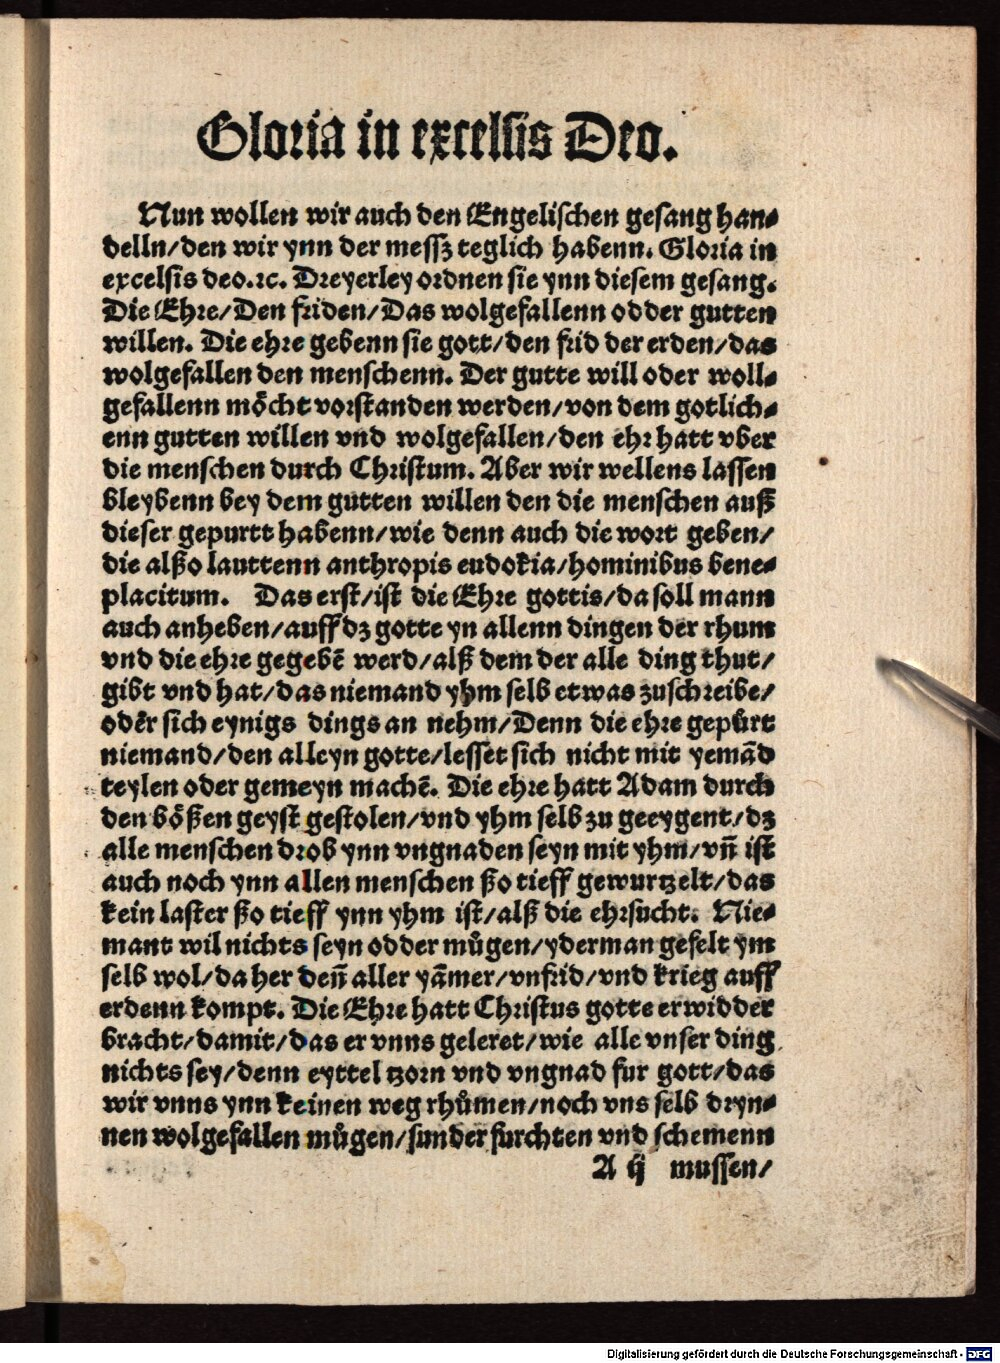 Gloria in excelsis Deo.
Nun wollen wir auch den Engelischen gesang han⸗
delln/den wir ynn der messz teglich habenn. Gloria in
excelsis deo.ꝛc. Dreyerley ordnen sie ynn diesem gesang.
Die Ehre/Den friden/Das wolgefallenn odder gutten
willen. Die ehre gebenn sie gott/den frid der erden/das
wolgefallen den menschenn. Der gutte will oder woll⸗
gefallenn moͤcht vorstanden werden/von dem gotlich⸗
enn gutten willen vnd wolgefallen/den ehr hatt vber
die menschen durch Christum. Aber wir wellens lassen
bleybenn bey dem gutten willen den die menschen auß
dieser gepurtt habenn/wie denn auch die wort geben/
die alßo lauttenn anthropis eudokia/hominibus bene⸗
placitum. Das erst/ist die Ehre gottis/da soll mann
auch anheben/auff dz gotte yn allenn dingen der rhum
vnd die ehre gegebē werd/alß dem der alle ding thut/
gibt vnd hat/das niemand yhm selb etwas zuschreibe/
odēr sich eynigs dings an nehm/Denn die ehre gepuͤrt
niemand/den alleyn gotte/lesset sich nicht mit yemād
teylen oder gemeyn machē. Die ehre hatt Adam durch
den boͤßen geyst gestolen/vnd yhm selb zu geeygent/dz
alle menschen drob ynn vngnaden seyn mit yhm/vn̄ ist
auch noch ynn allen menschen ßo tieff gewurtzelt/das
kein laster ßo tieff ynn yhm ist/alß die ehrsucht. Nie⸗
mant wil nichts seyn odder muͤgen/yderman gefelt ym
selb wol/da her den̄ aller yāmer/vnfrid/vnd krieg auff
erdenn kompt. Die Ehre hatt Christus gotte erwidder
bracht/damit/das er vnns geleret/wie alle vnser ding
nichts sey/denn eyttel tzorn vnd vngnad fur gott/das
wir vnns ynn keinen weg rhuͤmen/noch vns selb dryn⸗
nen wolgefallen muͤgen/sunder furchten vnd schemenn
A ij mussen/
Digitalisierung gefördert durch die Deutsche Forschungsgemeinschaft - DFG